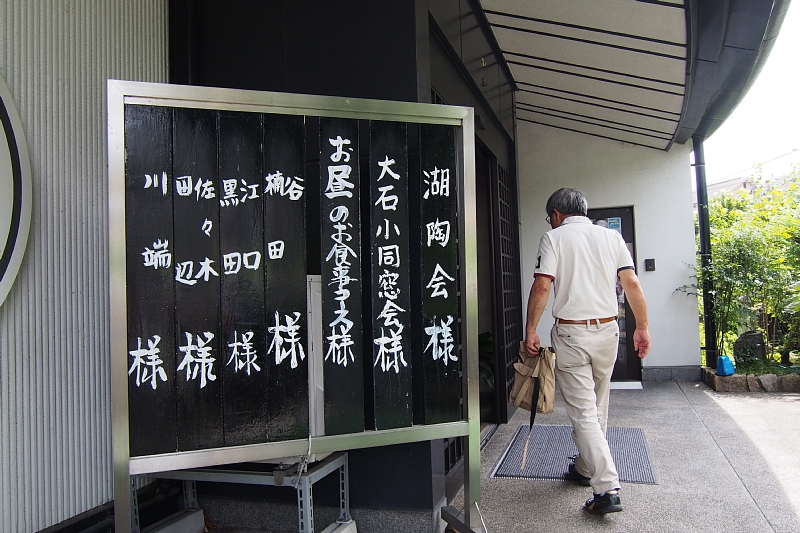 湖陶会様
大石小同窓会様
お昼のお食事コース様
谷
楠田様
江口
黒田様
佐々木
田辺様
川端様